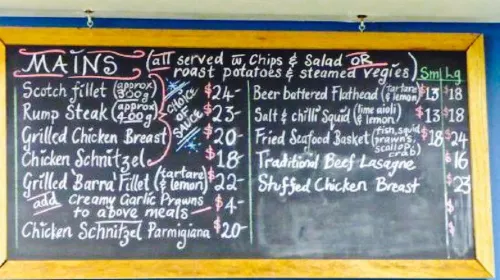 MAINS (all served w chips & Salad OR
roast potatoes & steamed vegies)
Scotch fillet (approx 300g) $24-
Rump Steak (approx 400g) $23-
Grilled Chicken Breast $20-
Chicken Schnitzel $18-
* CHOICE OF SAUCE *
Grilled 'Barra' Fillet (tartare & lemon) $22-
add creamy Garlic Prawns
to above meals - $4-
Chicken Schnitzel Parmigiana $20-
Sm Lg
Beer battered Flathead (tartare & lemon) $13 $18
Salt & chilli Squid (lime aioli & lemon) $13 $18
Fried Seafood Basket (fish, squid prawns, scallop, crab) $18 $24
Traditional Beef Lasagne $16
Stuffed Chicken Breast $23
$
$